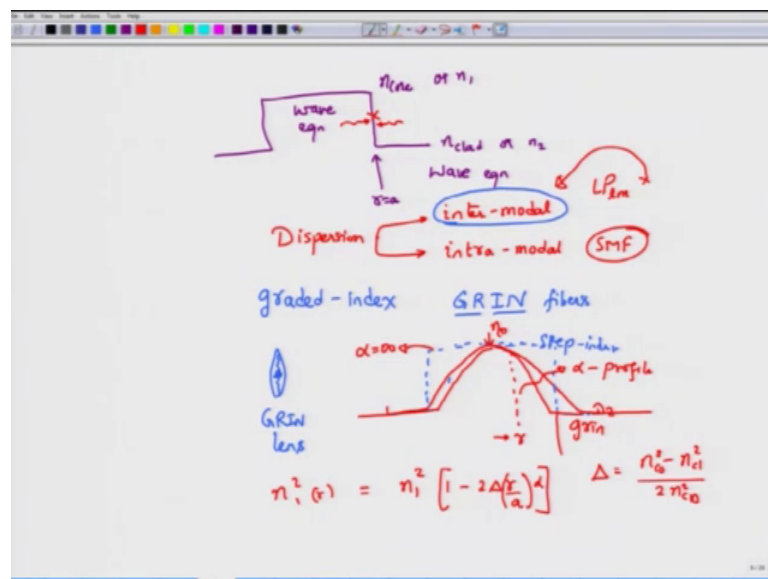 File Edit View Insert Actions Tools Help
n_core or n_1
wave
eqn
n_clad or n_2
Wave eqn
r=a
LP_lm
inter-modal
Dispersion
intra-modal SMF
graded-index GRIN fibers
n_0
α=∞ Step-index
α-profile
GRIN
lens
r
n_2
grin
n_1^2(r) = n_1^2 [1 - 2Δ(r/a)^α] Δ = (n_co^2 - n_cl^2) / 2n_co^2